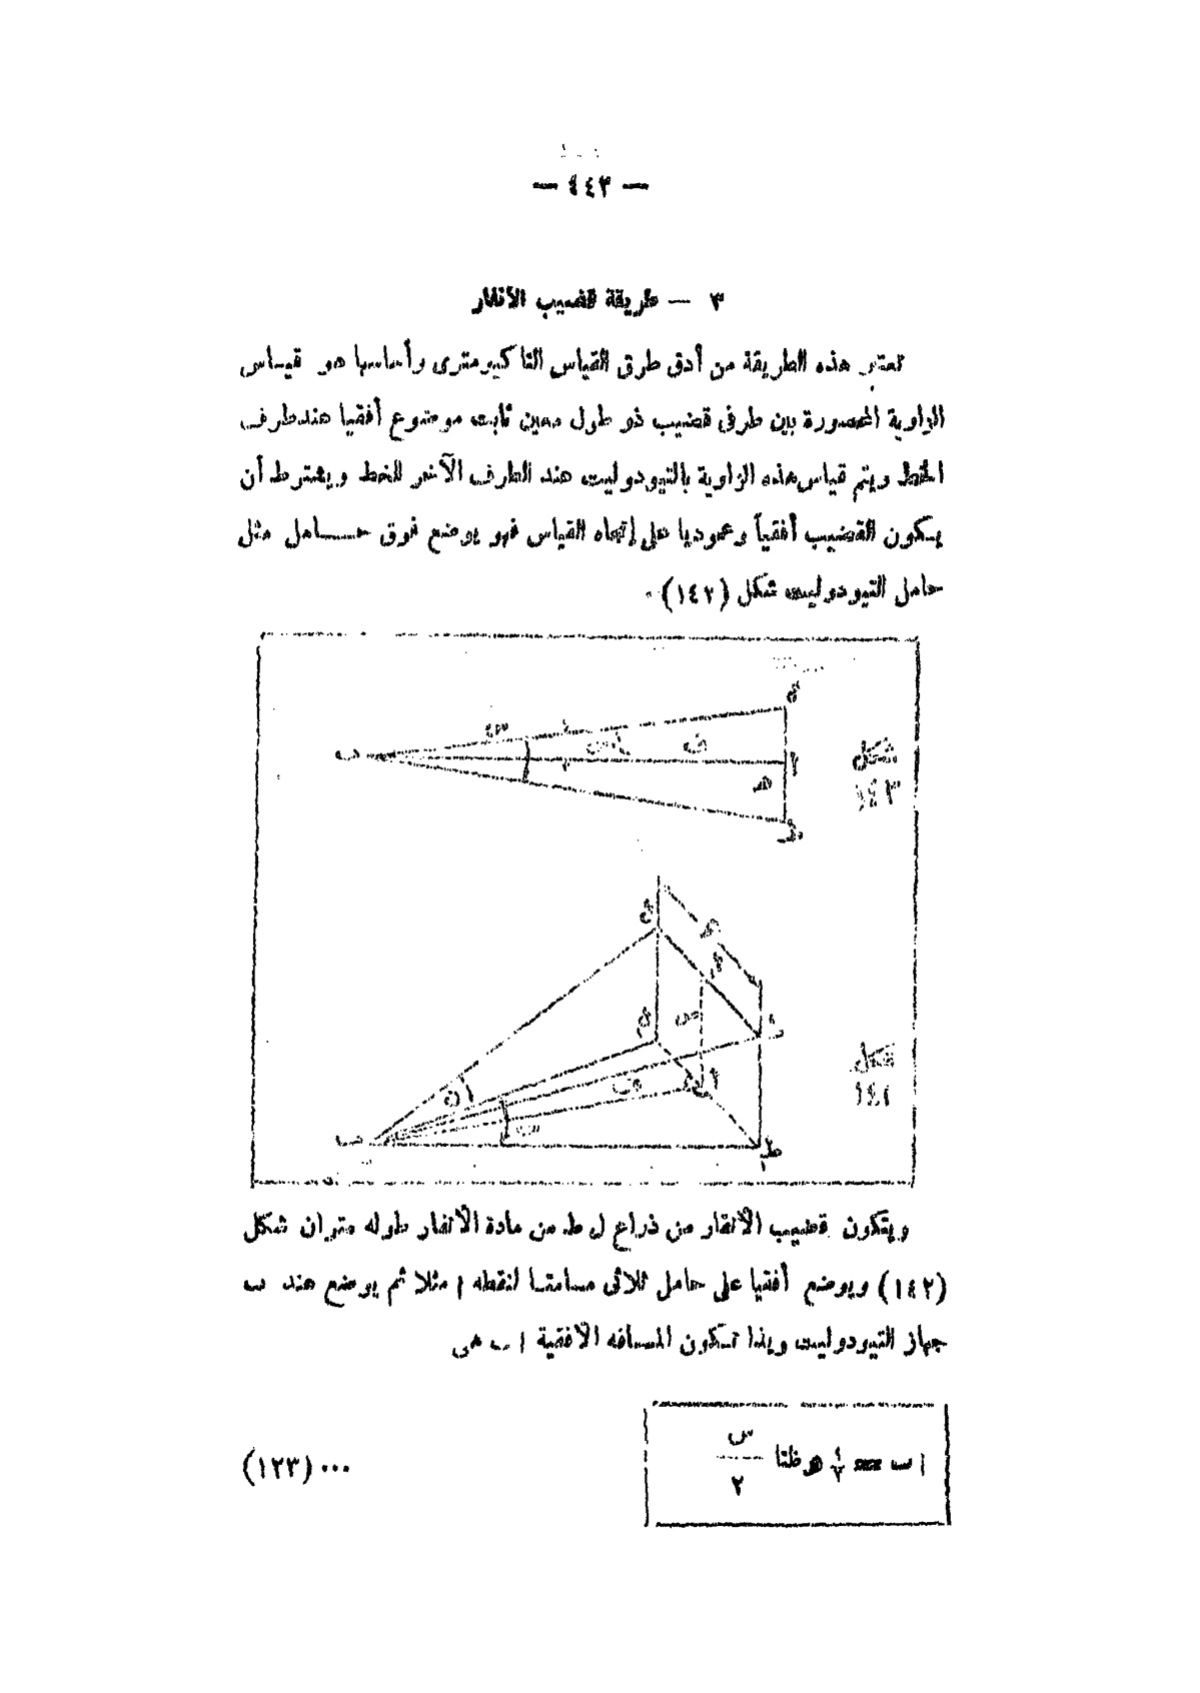 — ٤٤٣ —
٣ — طريقة قضيب الأنفار
تعتبر هذه الطريقة من أدق طرق القياس التاكيومترى وأساسها هو قيـاس
الزاوية المحصورة بين طرفى قضيب ذو طول معين ثابت موضوع أفقيا عند طرف
الخط ويتم قياس هذه الزاوية بالتيودوليت عند الطرف الآخر للخط ويشترط أن
يكون القضيب أفقياً وعموديا على إتجاه القياس فهو يوضع فوق حـــامل مثل
حامل التيودوليت شكل (١٤٢) ٠
شكل
١٤٣
ب
س
ف
ا
هـ
ط
شكل
ب
ن
س
ف
ا
ط
ويتكون قضيب الأنفار من ذراع ل ط من مادة الأنفار طوله متران شكل
(١٤٢) ويوضع أفقيا على حامل ثلاثى مسامتـا لنقطه ا مثلا ثم يوضع عند ب
جهاز التيودوليت وبذا تـكون المسافه الأفقية ا ب هى
ا ب = ١/٢ هـ ظتا س/٢
(١٢٣) ...